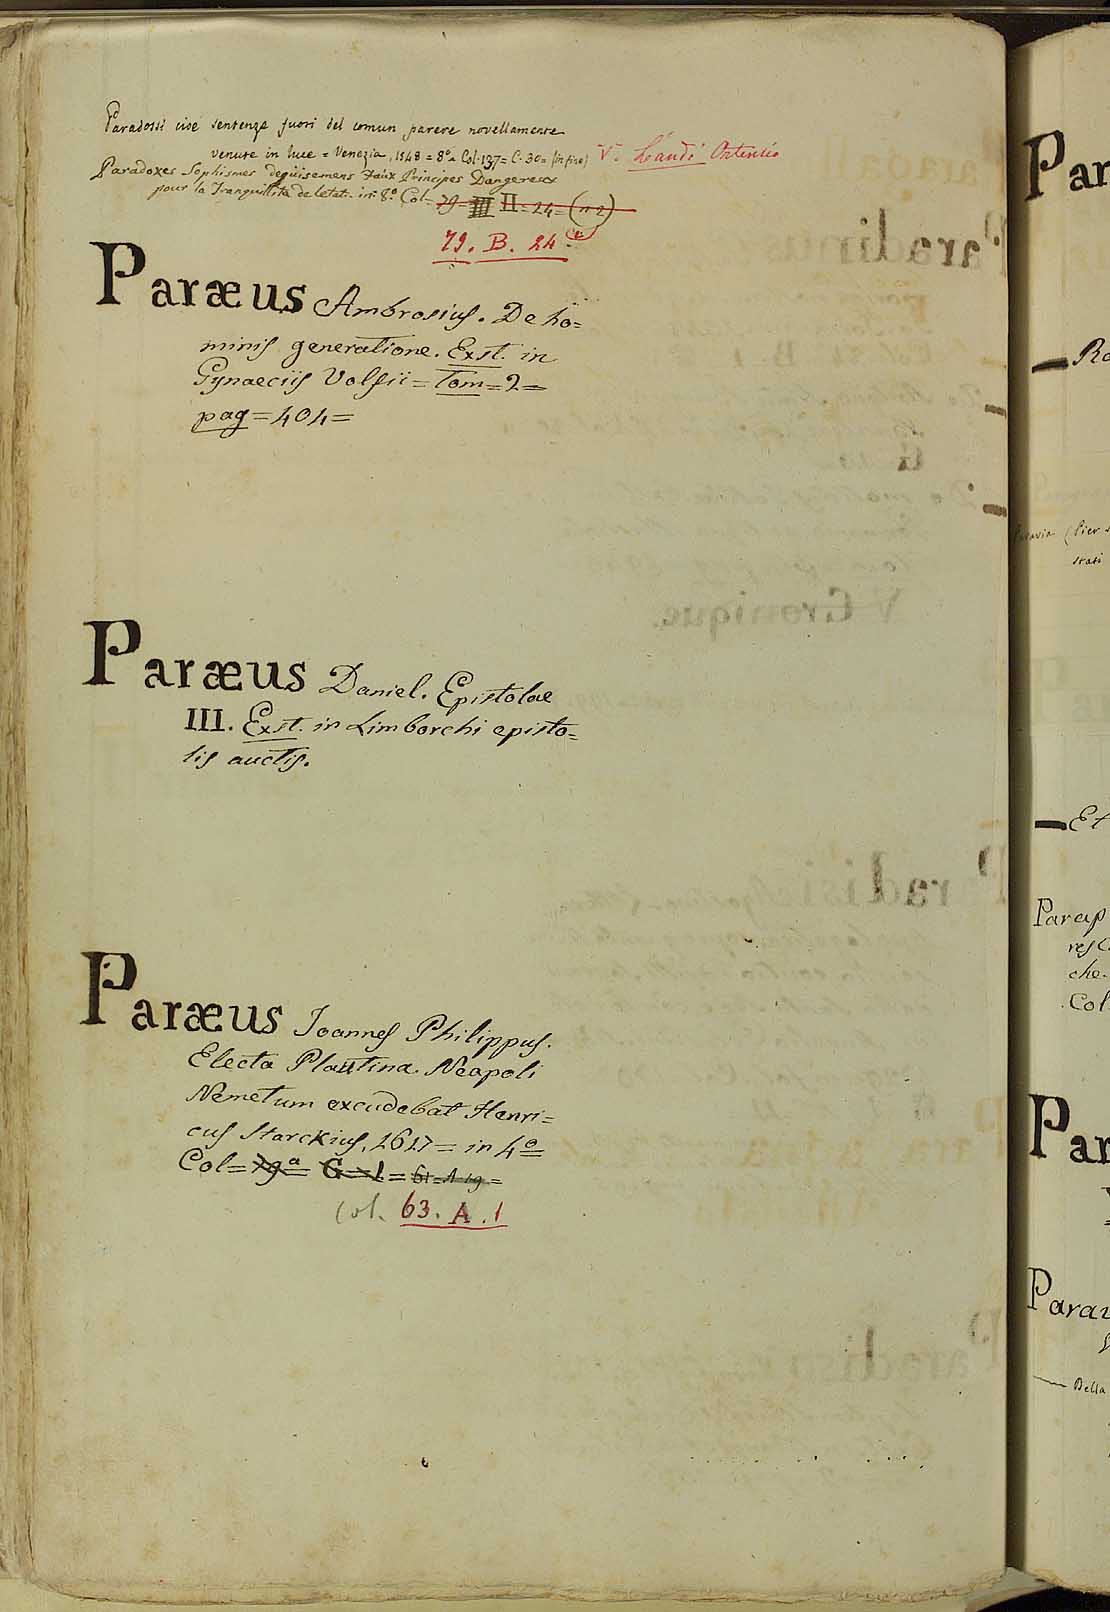 Paradossi cioè sentenze fuori del comun parere novellamente
venute in luce = Venezia, 1548 = 8º Col. 137 = C. 30 = (in fine) V. Landi Ortensio
Paradoxes Sophismes deguisemens Faux Principes Dangereux
pour la Tranquillité de l'etat. in 8º Col = 79 = III II = 24 = (n 2)
79. B. 24
Paræus Ambrosius. De ho=
minis generatione. Exst. in
Gynaeciis Volfii = Tom = 2 =
pag = 404 =
Paræus Daniel. Epistolae
III. Exst. in Limborchi episto=
lis auctis.
Paræus Joannes Philippus.
Electa Plautina. Neapoli
Nemetum excudebat Henri=
cus Starckius, 1617 = in 4º =
Col = 79ª G = 1 = 61 = A 19 =
Col. 63. A. 1
Par
Ro
Paravia (Pier
stati
Et
Parap
res
che.
Col.
Par
Parav
Bella